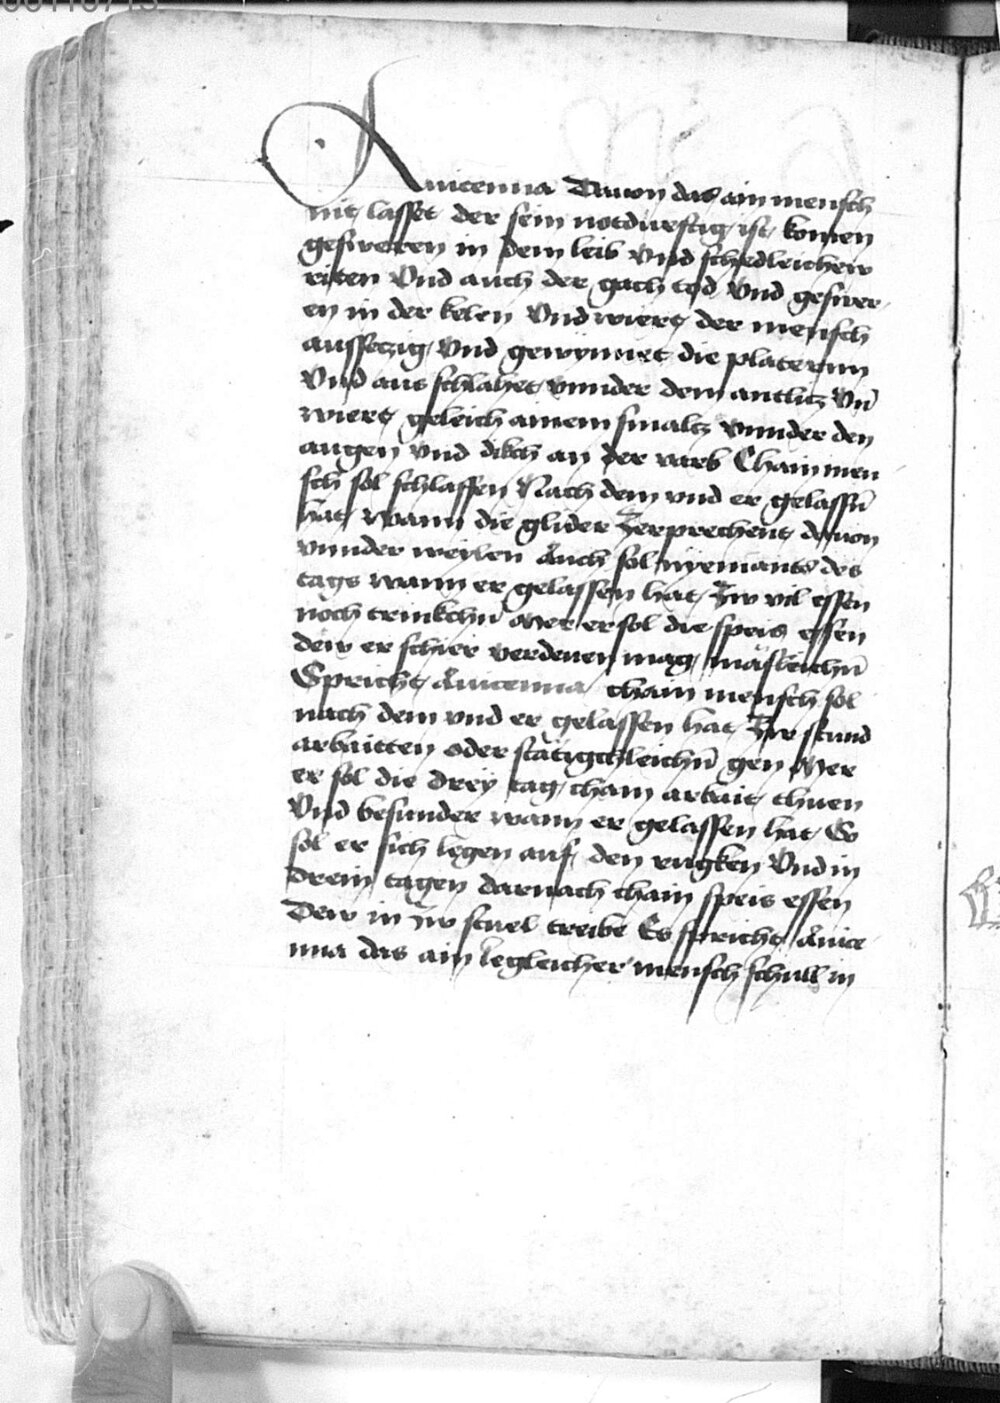 Auicenna Dauon das ain mensch
nit lasset der sein notdurftig ist komen
gesweren in dem leib Vnd schedleichew
riten Vnd auch der gach tod Vnd geswer
en in der kelen Vnd wiert der mensch
aussetzig Vnd gewinnet die platernn
Vnd aus schlahet vnnder dem antlitz Vn̄
wiert geleich ainem smaltz vnnder den
augen vnd dikch an der varb Chain men
sch sol schlaffen Nach dem vnd er gelassn̄
hat Wann die glider Zerprechent dauon
vnnder weylen Auch sol nyemants des
tags wann er gelassen hat Zw vil essen
noch trinkchn̄ Mer er sol die speis essen
dew er schier verdenen mag mäsleichn̄
Spricht Auicenna chain mensch sol
nach dem vnd er gelassen hat Zw stund
arbaitten oder stätigchleichn̄ gen Mer
er sol die drey tag chain arbait thuen
Vnd besunder wann er gelassen hat So
sol er sich legen auf den rugken Vnd in
drein tagen darnach chain speis essen
Dew in Zw stuel treibe Es spricht Auice
nna das ain Iegleicher mensch schull in